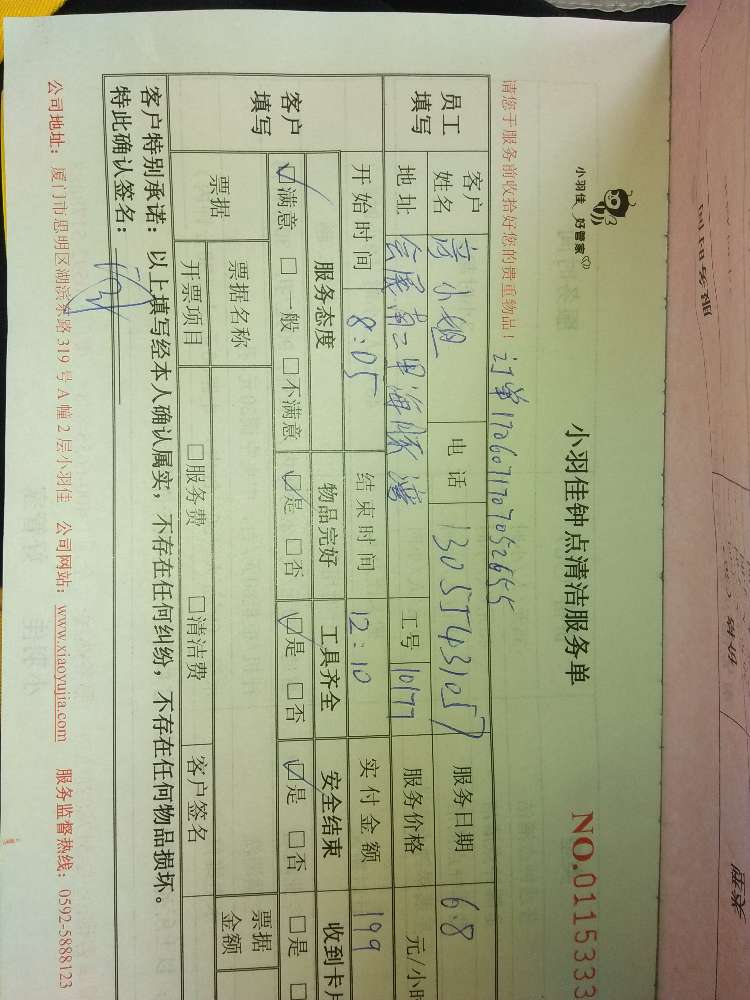 小羽佳 好管家
小羽佳钟点清洁服务单
NO.0115333
请您于服务前收拾好您的贵重物品！ 订单1706071707052655
员工填写 客户姓名 小姐 电话 13055431057 服务日期 6.8
地址 会展南二里海豚湾 工号 10177 服务价格 元/小时
开始时间 8:05 结束时间 12:10 实付金额 199
客户填写 服务态度 物品完好 工具齐全 安全结束 收到卡片
☑满意 □一般 □不满意 ☑是 □否 ☑是 □否 ☑是 □否 □是 □
票据 票据名称 票据金额
开票项目 □服务费 □清洁费 客户签名
客户特别承诺：以上填写经本人确认属实，不存在任何纠纷，不存在任何物品损坏。
特此确认签名：
公司地址：厦门市思明区湖滨东路 319 号 A 幢 2 层小羽佳 公司网站：www.xiaoyujia.com 服务监督热线：0592-5888123